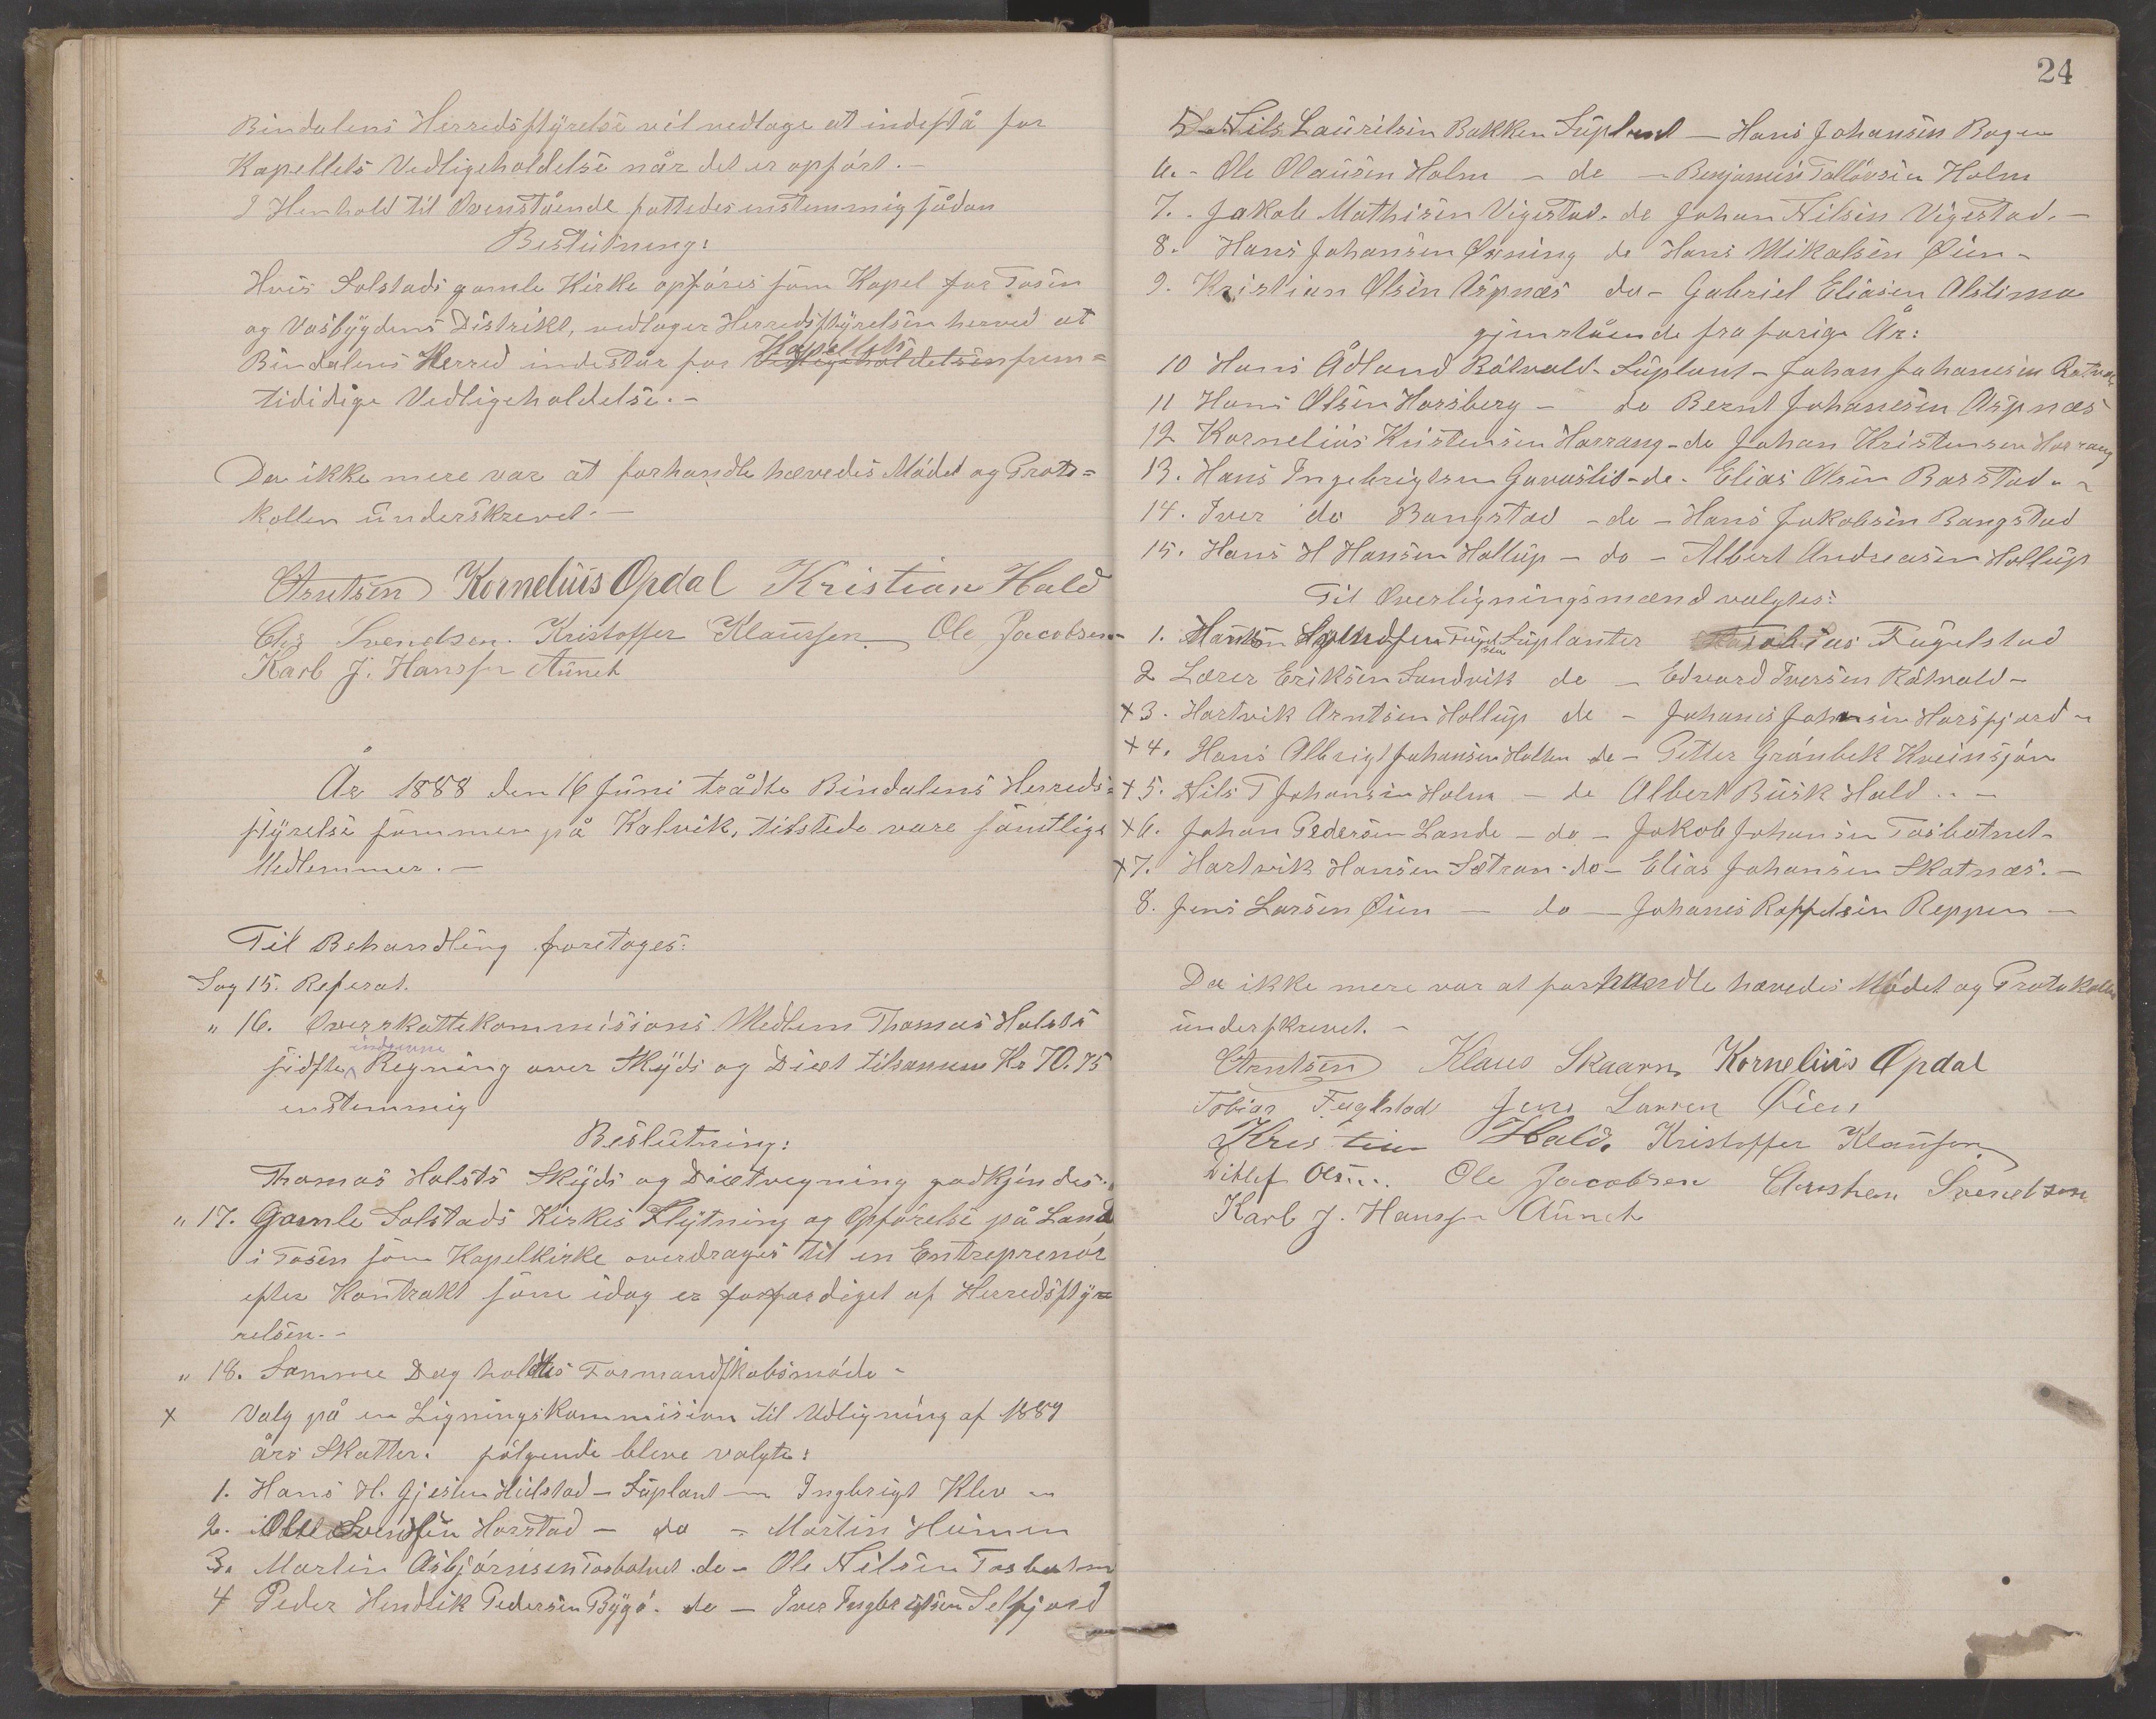 Bindalens Herredsstyrelse vil vedtage at indestå for
Kapellets Vedligeholdelse når det er opført. –
I Henhold til Ovenstående fattedes enstemmig sådan
Beslutning:
Hvis Solstads gamle Kirke opføres som Kapel for Tosen
og Vasbygdens Distrikt, vedtager Herredsstyrelsen herved at
Bindalens Herred indestår for Kapellets frem=
tididige Vedligeholdelse. –
Da ikke mere var at forhandle hævedes Mødet og Proto=
kollen underskrevet. –
CArntsen Kornelius Opdal Kristian Hald
Chr Svendsen. Kristoffer Klaussen Ole Jacobsen
Karl J. Hanssen Aunet
År 1888 den 16 Juni trådte Bindalens Herreds=
styrelse sammen på Kalvik, tilstede vare samtlige
Medlemmer. –
Til Behandling foretoges:
Sag 15. Referat.
" 16. Overskattekommissions Medlem Thomas Holsts
sidste indkomne Regning over Skyds og Diæt tilsammen Kr 70.75
enstemmig
Beslutning:
Thomas Holsts Skyds og Diætregning godkjendes.
" 17. Gamle Solstads Kirkes Flytning og Opførelse på Land
i Tosen som Kapelkirke overdrages til en Entreprenør
efter Kontrakt som idag er forfærdiget af Herredssty=
relsen. –
" 18. Samme Dag holdtes Formandskabsmøde –
x Valg på en Ligningskommision til Udligning af 1889
års Skatter. følgende bleve valgte:
1. Hans H. Gjesten Hulstad – Suplant – Ingbrigt Klev –
2. Ole Svendsen Horstad – do – Martin Heimen
3. Martin Asbjørnsen Tosbotnet do – Ole Nilsen Tosbotn
4 Peder Hendrik Pedersen Bygø. do – Iver Ingbrigtsen Selfjord
24
5 Nils Lauritsen Bakken Suplant – Hans Johansen Bogen
6. – Ole Olausen Holm – do – Benjamin Tolløvsen Holm
7. Jakob Mathisen Vigestad. do Johan Nilsen Vigestad. –
8. Hans Johansen Øvning do Hans Mikalsen Øien –
9. Kristian Olsen Aspnæs do – Gabriel Eliasen Alstimo
gjenstående fra forige År:
10 Hans Ådland Båtvald – Suplant – Johan Johanesen
11 Hans Olsen Horsberg – do Bernt Johanesen Aspnæs
12 Kornelius Kristensen Horvang – do Johan Kristensen Horvang
13. Hans Ingebrigtsen Gavaslid – do – Elias Olsen Barstad. –
14. Iver do Bangstad – do – Hans Jakobsen Bangstad
15. Hans H Hansen Hollup – do – Albert Andreasen Hollup
Til Overligningsmænd valgtes:
1. Suplanter Tobias Fugelstad
2 Lærer Eriksen Sandvik do – Edvard Iversen Båtvald –
x 3. Hartvik Arntsen Hollup do – Johanes Johansen Horsfjord –
x 4. Hans Albrigt Johansen Holten do – Petter Grønbek Kveinsjøn
x 5. Nils T Johansen Holm – do Albert Busk Hald . . –
x 6. Johan Pedersen Lande – do – Jakob Johansen Tosbotnet –
x 7. Hartvik Hansen Sætran – do – Elias Johansen Skotnæs. –
8. Jens Larsen Øien – do – Johanes Roffelsen Reppen –
Da ikke mere var at forhandle hævedes Mødet og Protokollen
underskrevet. –
CArntsen Klaus Skaarn Kornelius Opdal
Tobias Fuglstad Jens Larsen Øien
Kristian Hald. Kristoffer Klaussen
Ditlef Olsen Ole Jacobsen Christen Svendsen
Karl J. Hanssen Aunet